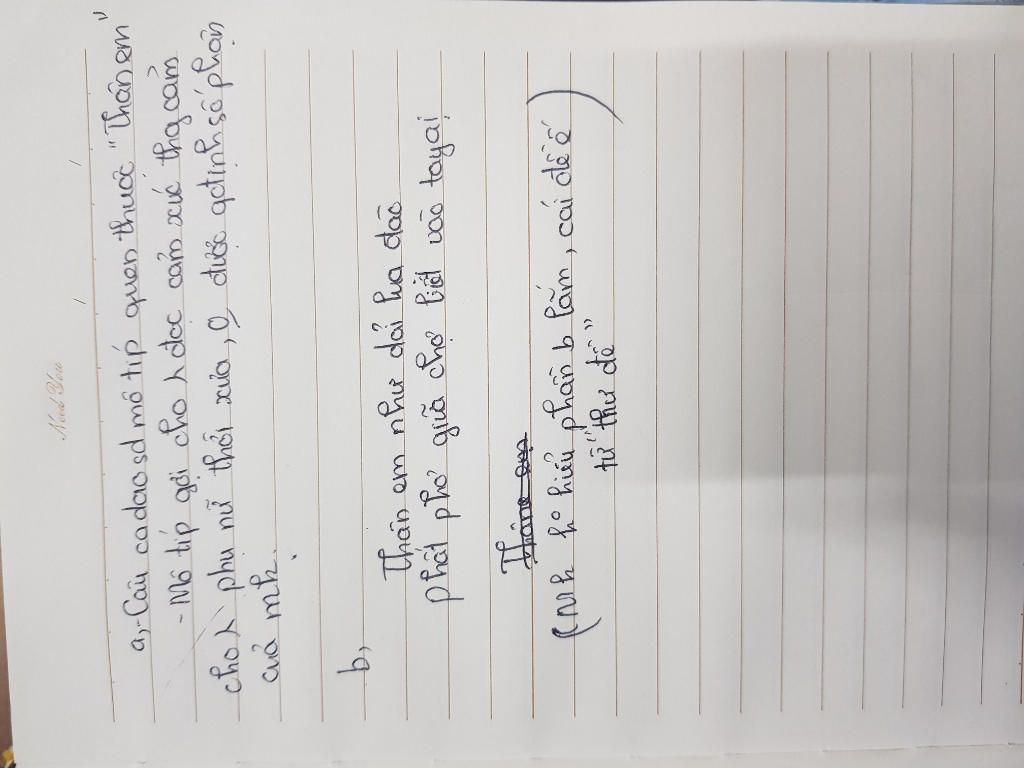 Need You
a,-Câu ca dao sd mô típ quen thuộc "Thân em"
-Mô típ gợi cho λ đọc cảm xúc thg cảm
cho λ phụ nữ thời xưa, o được qđịnh số phận
của mk.
b,
Thân em như dải lụa đào
phất phơ giữa chợ biết vào tay ai
Thân em
(Mk ko hiểu phần b lắm, cái đề ế
từ "thư đề"
)